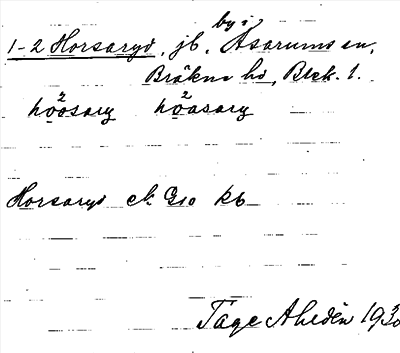 by i
1-2 Horsaryd, jb, Asarums sn,
Bräkne hd, Blek. l.
ho2osary ho2asary
Horsaryd ek G10 kb
Tage Ahldén 1930